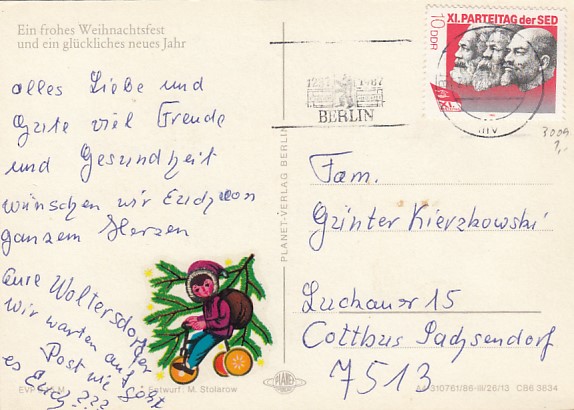 Ein frohes Weihnachtsfest
und ein glückliches neues Jahr
alles Liebe und
Gute viel Freude
und Gesundheit
wünschen wir Euch von
ganzem Herzen
eure Woltersdorfer
Wir warten auf
Post wie gehts
es Euch???
EVP
Entwurf: M. Stolarow
PLANET-VERLAG BERLIN
PLANET
XI. PARTEITAG der SED
10 DDR
XI.
1237 1987
BERLIN
3009
1,-
Fam.
Günter Kierzkowski
Luckauer 15
Cottbus Sachsendorf
7513
310761/86-III/26/13 C86 3834